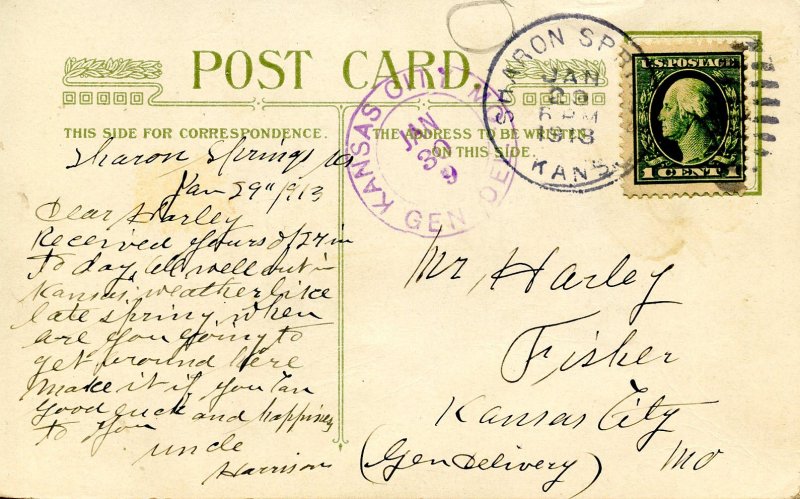 POST CARD
THIS SIDE FOR CORRESPONDENCE.
THE ADDRESS TO BE WRITTEN
ON THIS SIDE.
SHARON SPRI
JAN
29
6 PM
1913
KANS
KANSAS CITY MO
JAN
30
9
GEN DEL
U.S. POSTAGE
1 CENT 1
Sharon Springs Ks
Jan 29" 1913
Dear Harley
Received yours of 27 in
To day, all well out in
Kansas, weather like
late spring, when
are you going to
get around here
Make it if you Can
Good luck and happiness
To you
uncle
Harrison
Mr, Harley
Fisher
Kansas City
(Gen Delivery) Mo